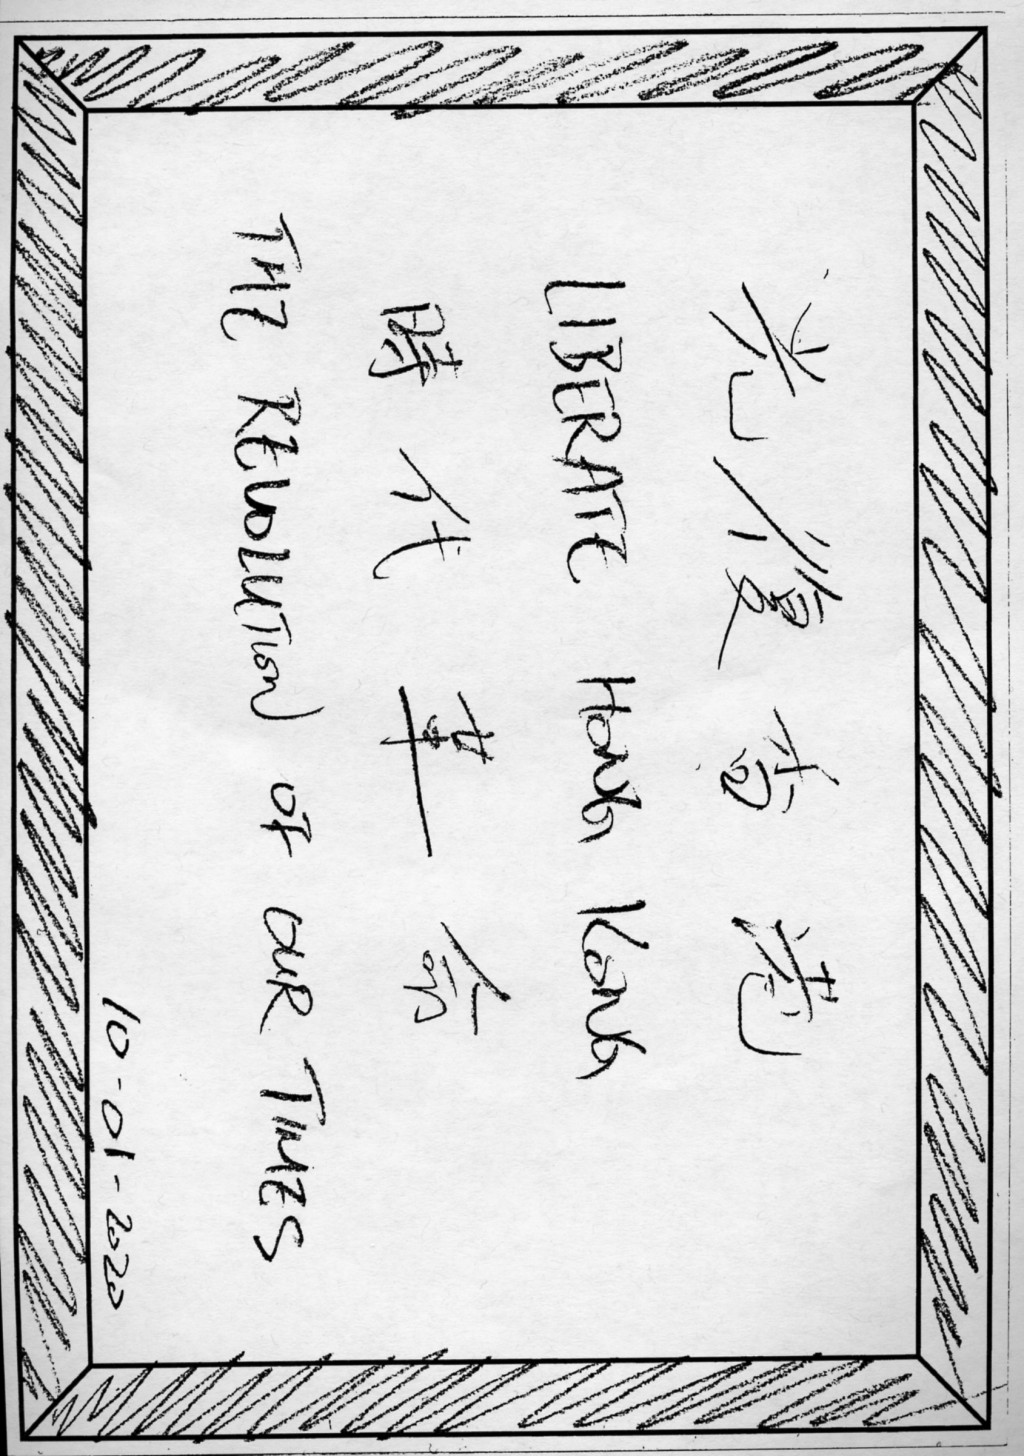 光復香港
LIBERATE HONG KONG
時代革命
THE REVOLUTION OF OUR TIMES
10-01-2020